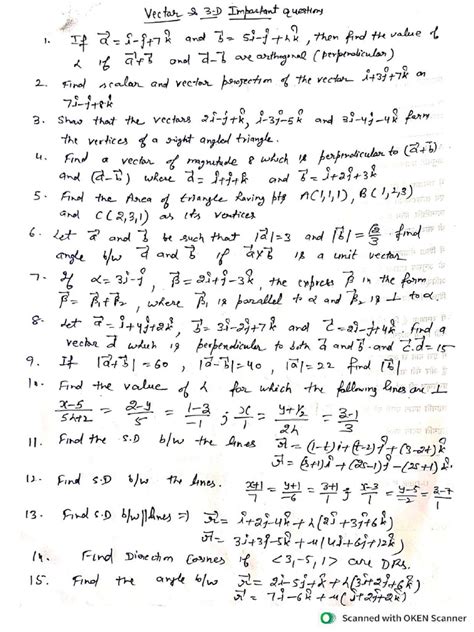 Vector & 3-D Important questions
1. If a⃗ = î-ĵ+7k̂ and b⃗ = 5î-ĵ+λk̂, then find the value of
λ if a⃗+b⃗ and a⃗-b⃗ are orthogonal (perpendicular)
2. Find scalar and vector projection of the vector î+3ĵ+7k̂ on
7î-ĵ+8k̂
3. Show that the vectors 2î-ĵ+k̂, î-3ĵ-5k̂ and 3î-4ĵ-4k̂ form
the vertices of a right angled triangle.
4. Find a vector of magnitude 8 which is perpendicular to (a⃗+b⃗)
and (a⃗-b⃗) where a⃗ = î+ĵ+k̂ and b⃗ = î+2ĵ+3k̂
5. Find the Area of triangle having pts A(1,1,1), B(1,2,3)
and C(2,3,1) as its vertices
6. Let a⃗ and b⃗ be such that |a⃗|=3 and |b⃗|=√2/3. find
angle b/w a⃗ and b⃗ if a⃗×b⃗ is a unit vector
7. If α⃗ = 3î-ĵ, β⃗ = 2î+ĵ-3k̂, the express β⃗ in the form
β⃗ = β⃗1+β⃗2, where β⃗1 is parallel to α and β⃗2 is ⊥ to α.
8. Let a⃗ = î+4ĵ+2k̂, b⃗ = 3î-2ĵ+7k̂ and c⃗ = 2î-ĵ+4k̂. find a
vector d⃗ which is perpendicular to both a⃗ and b⃗ and c⃗.d⃗ = 15
9. If |a⃗+b⃗| = 60, |a⃗-b⃗| = 40, |a⃗| = 22 find |b⃗|
10. Find the value of λ for which the following lines are ⊥
x-5/5λ+2 = 2-y/5 = 1-z/-1 ; x/1 = y+1/2/2λ = z-1/3
11. Find the S.D b/w the lines r⃗ = (1-t)î+(t-2)ĵ+(3-2t)k̂
r⃗ = (s+1)î+(2s-1)ĵ-(2s+1)k̂.
12. Find S.D b/w the lines. x+1/7 = y+1/-6 = z+1/1 ; x-3/1 = y-5/-2 = z-7/1
13. Find S.D b/w || lines ⇒ r⃗ = î+2ĵ-4k̂ + λ(2î+3ĵ+6k̂)
r⃗ = 3î+3ĵ-5k̂ + μ(4î+6ĵ+12k̂)
14. Find Direction Cosines if <3,-5,1> are DRs.
15. Find the angle b/w r⃗ = 2î-5ĵ+k̂ + λ(3î+2ĵ+6k̂)
r⃗ = 7î-6k̂ + μ(î+2ĵ+2k̂)
Scanned with OKEN Scanner